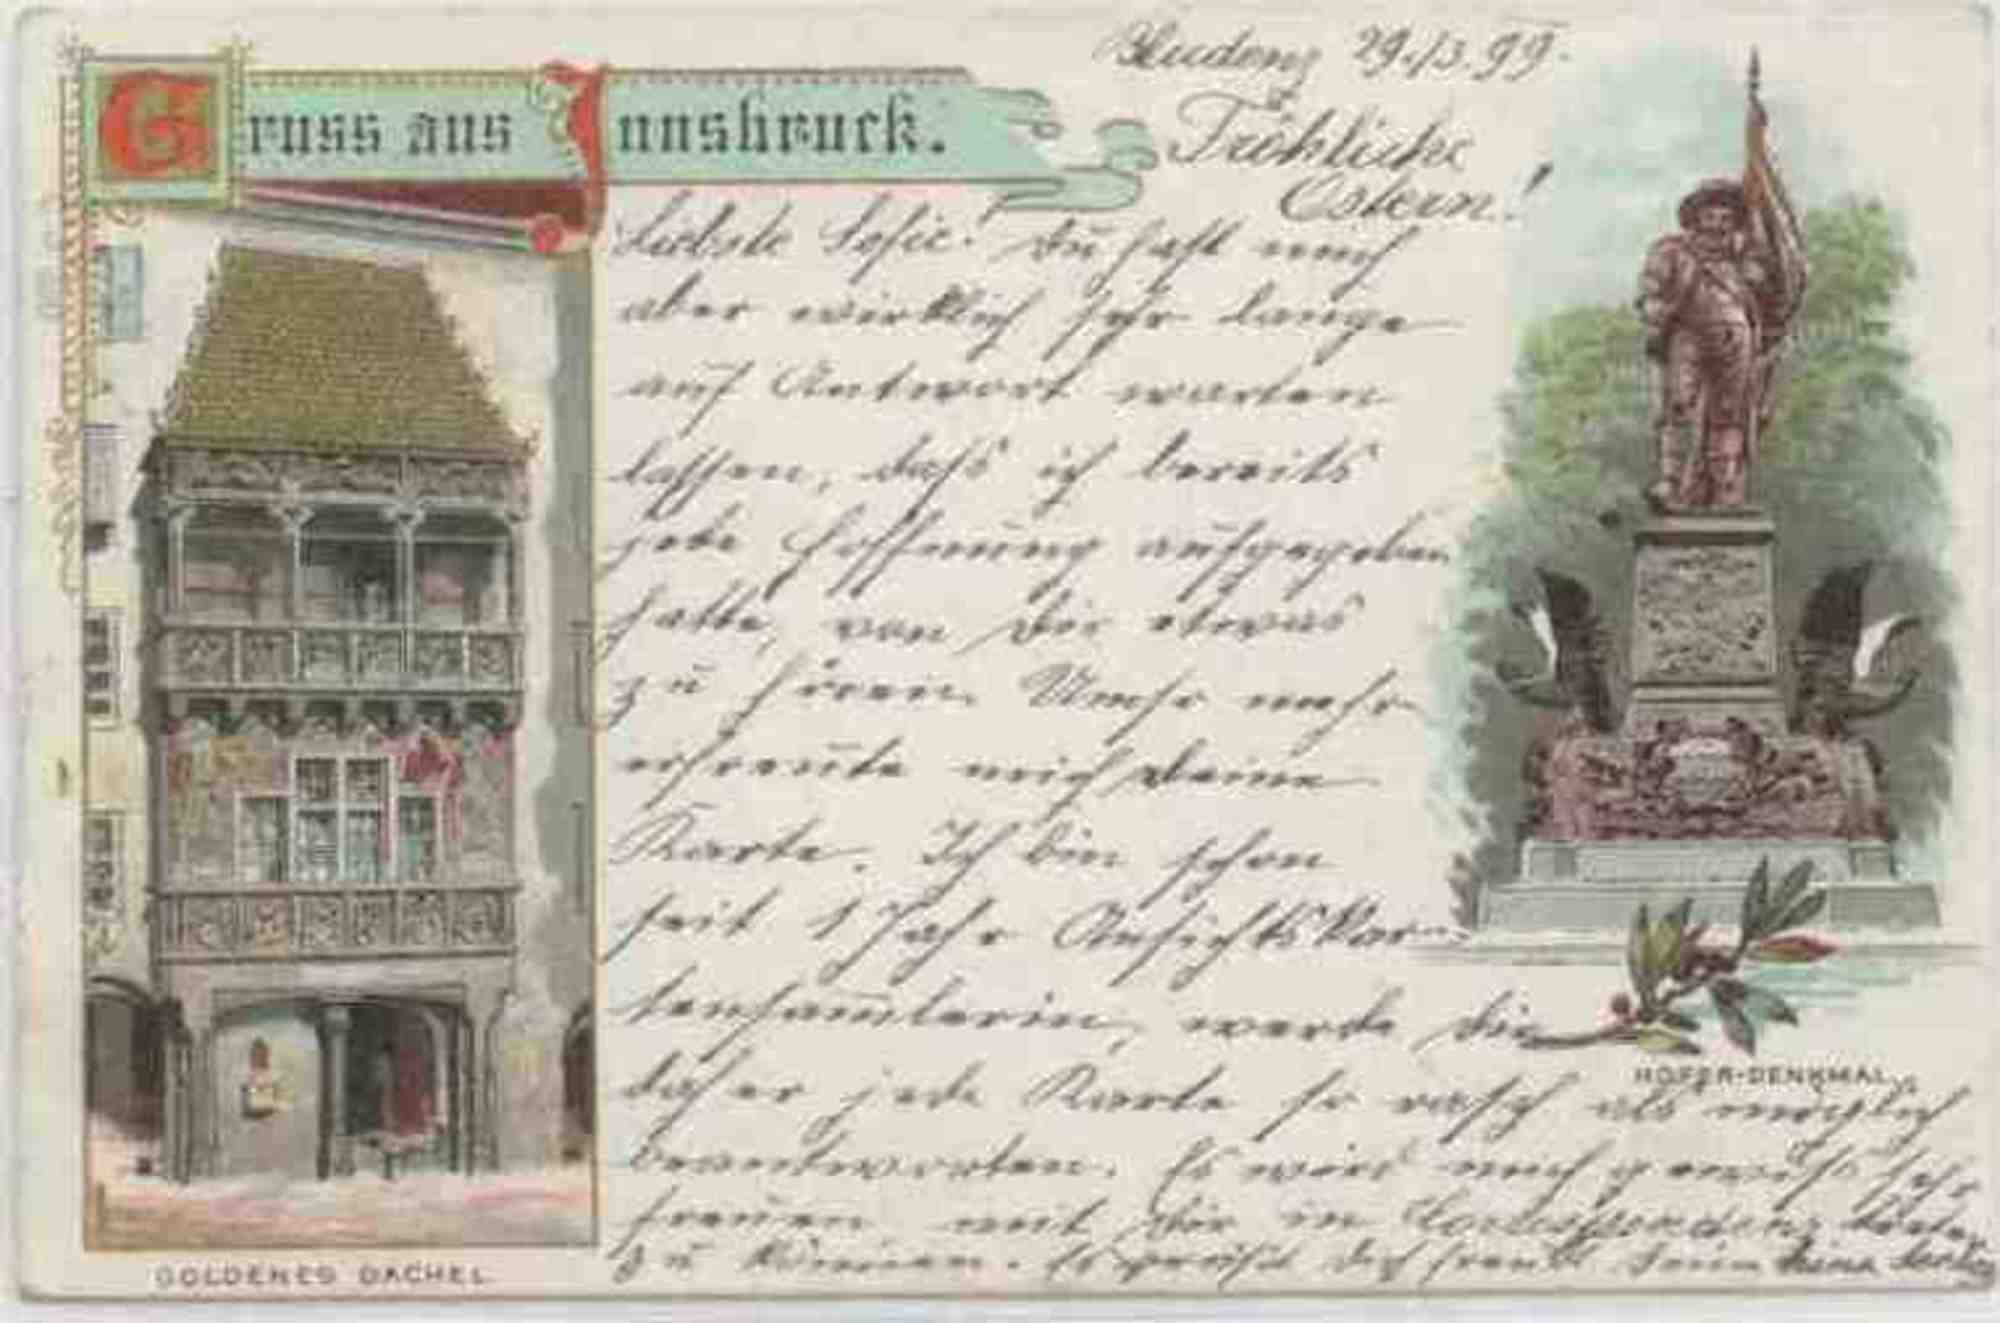 Gruss aus Innsbruck.
Bludenz 29./3.99.
Fröhliche
Ostern!
Liebste Sofie! Du hast mich
aber wirklich sehr lange
auf Antwort warten
lassen, daß ich bereits
jede Hoffnung aufgegeben
hatte, von Dir etwas
zu hören. Umso mehr
erfreute mich Deine
Karte. Ich bin schon
seit 1 Jahr Ansichtskar-
tensammlerin, werde dir
daher jede Karte so rasch als möglich
beantworten. Es wird mich gewiß sehr
freuen mit Dir in Correspondenz
zu können. Es grüßt Dich Deine
GOLDENES DACHEL
HOFER-DENKMAL